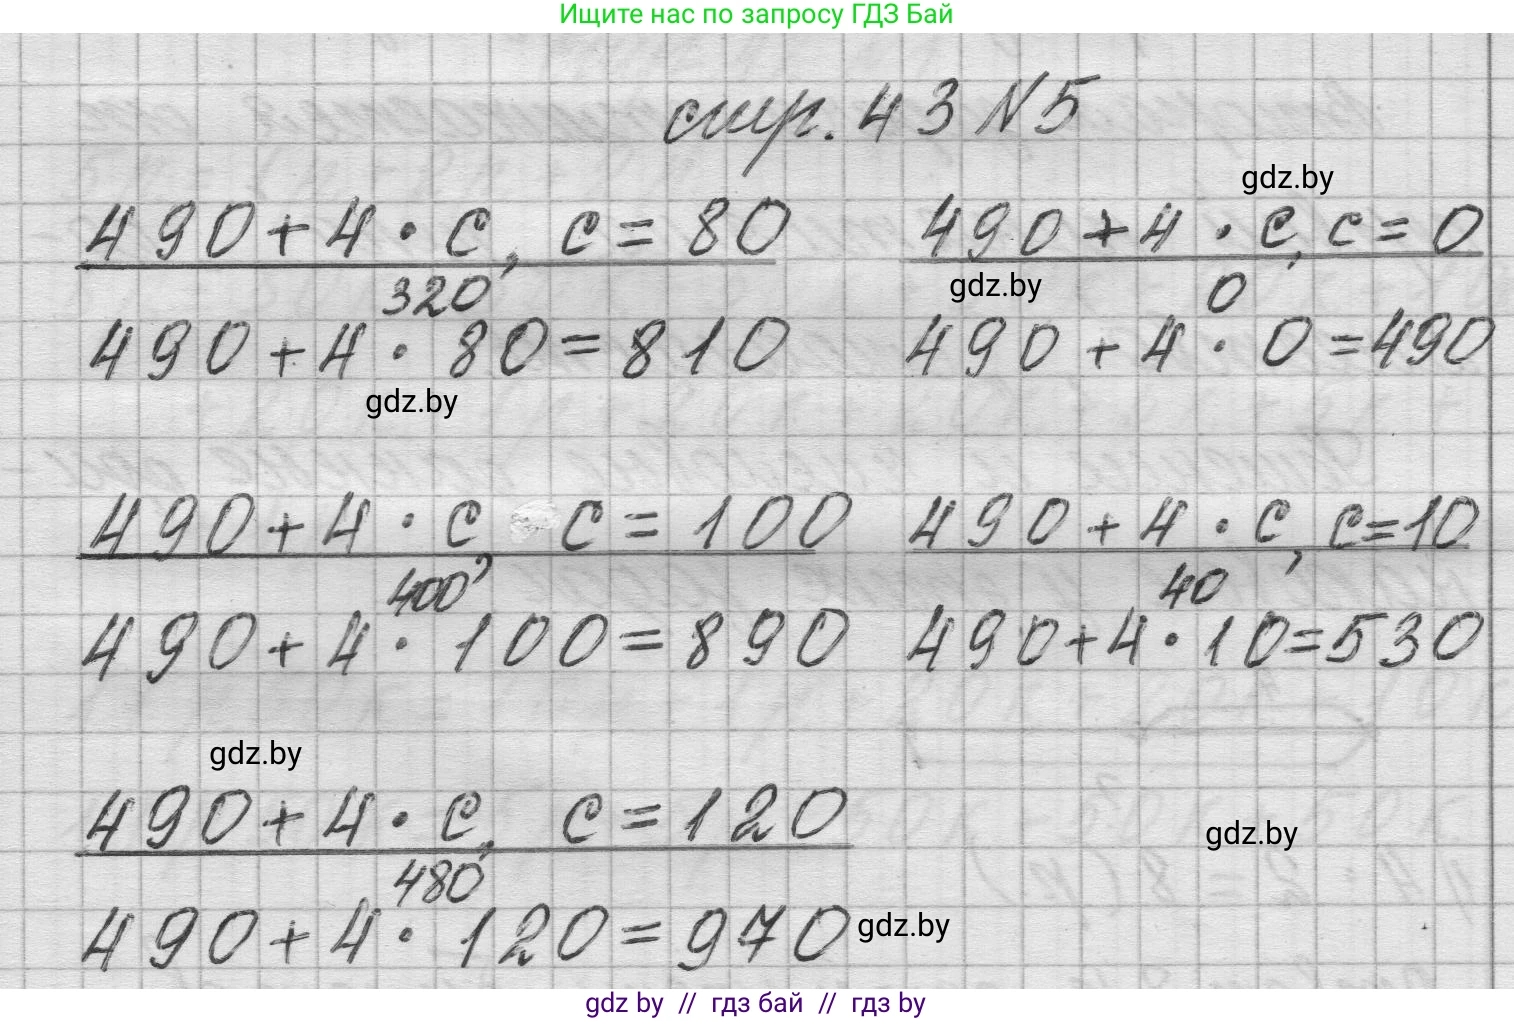 Ищите нас по запросу ГДЗ Бай
стр. 43 №5
gdz.by
490+4·c, c=80
490+4·c, c=0
gdz.by
320
0
490+4·80=810
490+4·0=490
gdz.by
490+4·c, c=100
490+4·c, c=10
400
40
490+4·100=890
490+4·10=530
gdz.by
490+4·c, c=120
gdz.by
480
490+4·120=970
gdz.by
gdz by // гдз бай // гдз by